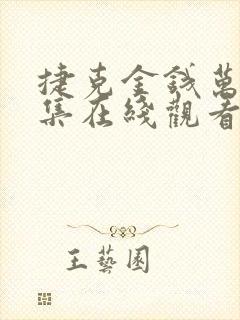 捷克金钱萬
集在綫觀看
王藝園